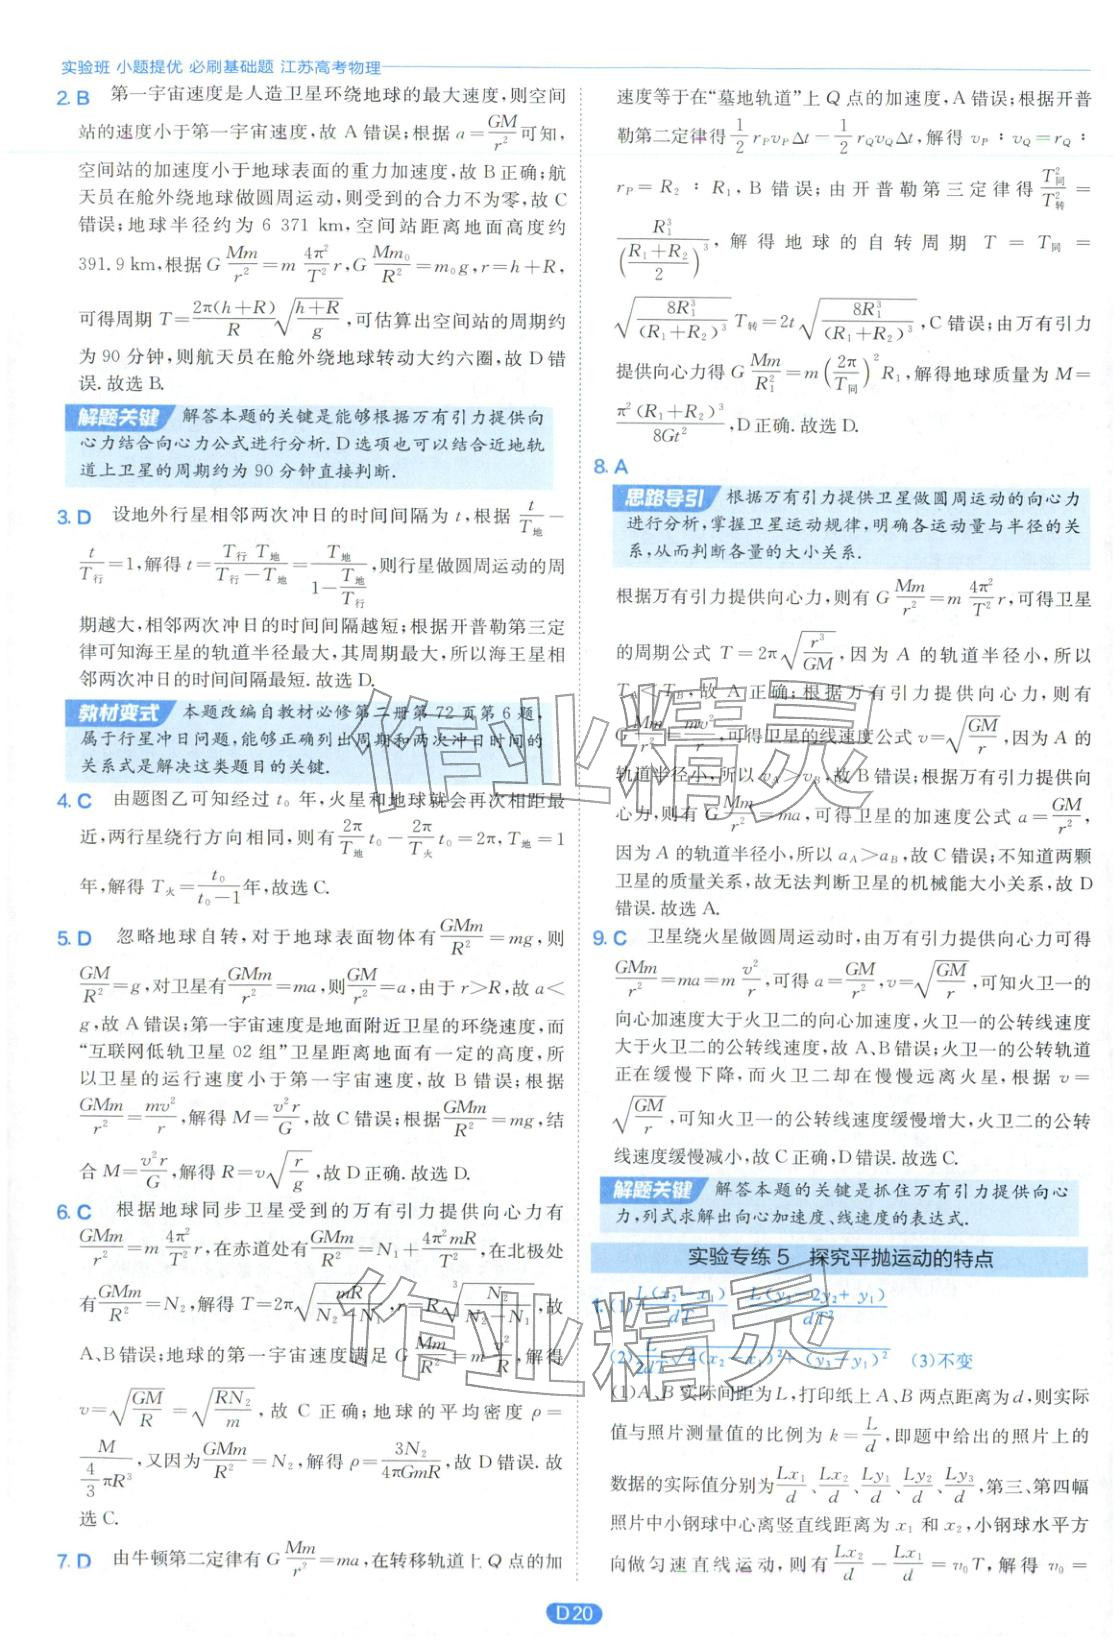 实验班 小题提优 必刷基础题 江苏高考物理
2. B 第一宇宙速度是人造卫星环绕地球的最大速度,则空间
站的速度小于第一宇宙速度,故 A 错误;根据 a=GM/r²可知,
空间站的加速度小于地球表面的重力加速度,故 B 正确;航
天员在舱外绕地球做圆周运动,则受到的合力不为零,故 C
错误;地球半径约为 6 371 km,空间站距离地面高度约
391.9 km,根据 G Mm/r²=m 4π²/T² r,G Mm₀/R²=m₀g,r=h+R,
可得周期 T=2π(h+R)/R √((h+R)/g),可估算出空间站的周期约
为 90 分钟,则航天员在舱外绕地球转动大约六圈,故 D 错
误. 故选 B.
解题关键 解答本题的关键是能够根据万有引力提供向
心力结合向心力公式进行分析. D 选项也可以结合近地轨
道上卫星的周期约为 90 分钟直接判断.
3. D 设地外行星相邻两次冲日的时间间隔为 t,根据 t/T地−
t/T行=1,解得 t=T行 T地/(T行−T地)=T地/(1−T地/T行),则行星做圆周运动的周
期越大,相邻两次冲日的时间间隔越短;根据开普勒第三定
律可知海王星的轨道半径最大,其周期最大,所以海王星相
邻两次冲日的时间间隔最短. 故选 D.
教材变式 本题改编自教材必修第二册第 72 页第 6 题,
属于行星冲日问题,能够正确列出周期和两次冲日时间的
关系式是解决这类题目的关键.
4. C 由题图乙可知经过 t₀ 年,火星和地球就会再次相距最
近,两行星绕行方向相同,则有 2π/T地 t₀−2π/T火 t₀=2π,T地=1
年,解得 T火=t₀/(t₀−1)年,故选 C.
5. D 忽略地球自转,对于地球表面物体有 GMm/R²=mg,则
GM/R²=g,对卫星有 GMm/r²=ma,则 GM/r²=a,由于 r>R,故 a<
g,故 A 错误;第一宇宙速度是地面附近卫星的环绕速度,而
“互联网低轨卫星 02 组”卫星距离地面有一定的高度,所
以卫星的运行速度小于第一宇宙速度,故 B 错误;根据
GMm/r²=mv²/r,解得 M=v²r/G,故 C 错误;根据 GMm/R²=mg,结
合 M=v²r/G,解得 R=v√(r/g),故 D 正确. 故选 D.
6. C 根据地球同步卫星受到的万有引力提供向心力有
GMm/r²=m 4π²/T² r,在赤道处有 GMm/R²=N₁+4π²mR/T²,在北极处
有 GMm/R²=N₂,解得 T=2π√(mR/(N₂−N₁)),r=R ³√(N₂/(N₂−N₁)),故
A、B 错误;地球的第一宇宙速度满足 G Mm/R²=m v²/R,解得
v=√(GM/R)=√(RN₂/m),故 C 正确;地球的平均密度 ρ=
M/(4/3 πR³),又因为 GMm/R²=N₂,解得 ρ=3N₂/4πGmR,故 D 错误. 故
选 C.
7. D 由牛顿第二定律有 G Mm/r²=ma,在转移轨道上 Q 点的加
速度等于在“墓地轨道”上 Q 点的加速度,A 错误;根据开普
勒第二定律得 1/2 r_P v_P Δt=1/2 r_Q v_Q Δt,解得 v_P∶v_Q=r_Q∶
r_P=R₂∶R₁,B 错误;由开普勒第三定律得 T同²/T转²=
R₁³/((R₁+R₂)/2)³,解得地球的自转周期 T=T同=
√(8R₁³/(R₁+R₂)³) T转=2t√(8R₁³/(R₁+R₂)³),C 错误;由万有引力
提供向心力得 G Mm/R₁²=m(2π/T同)² R₁,解得地球质量为 M=
π²(R₁+R₂)³/8Gt²,D 正确. 故选 D.
8. A
思路导引 根据万有引力提供卫星做圆周运动的向心力
进行分析,掌握卫星运动规律,明确各运动量与半径的关
系,从而判断各量的大小关系.
根据万有引力提供向心力,则有 G Mm/r²=m 4π²/T² r,可得卫星
的周期公式 T=2π√(r³/GM),因为 A 的轨道半径小,所以
T_A<T_B,故 A 正确;根据万有引力提供向心力,则有
G Mm/r²=mv²/r,可得卫星的线速度公式 v=√(GM/r),因为 A 的
轨道半径小,所以 v_A>v_B,故 B 错误;根据万有引力提供向
心力,则有 G Mm/r²=ma,可得卫星的加速度公式 a=GM/r²,
因为 A 的轨道半径小,所以 a_A>a_B,故 C 错误;不知道两颗
卫星的质量关系,故无法判断卫星的机械能大小关系,故 D
错误. 故选 A.
9. C 卫星绕火星做圆周运动时,由万有引力提供向心力可得
GMm/r²=ma=m v²/r,可得 a=GM/r²,v=√(GM/r),可知火卫一的
向心加速度大于火卫二的向心加速度,火卫一的公转线速度
大于火卫二的公转线速度,故 A、B 错误;火卫一的公转轨道
正在缓慢下降,而火卫二却在慢慢远离火星,根据 v=
√(GM/r),可知火卫一的公转线速度缓慢增大,火卫二的公转
线速度缓慢减小,故 C 正确,D 错误. 故选 C.
解题关键 解答本题的关键是抓住万有引力提供向心
力,列式求解出向心加速度、线速度的表达式.
实验专练 5 探究平抛运动的特点
1. (1) L(x₂−x₁)/dT L(y₃−2y₂+y₁)/dT²
(2) L/2dT √(4(x₂−x₁)²+(y₃−y₁)²) (3)不变
(1)A、B 实际间距为 L,打印纸上 A、B 两点距离为 d,则实际
值与照片测量值的比例为 k=L/d,即题中给出的照片上的
数据的实际值分别为 Lx₁/d、Lx₂/d、Ly₁/d、Ly₂/d、Ly₃/d,第三、第四幅
照片中小钢球中心离竖直线距离为 x₁ 和 x₂,小钢球水平方
向做匀速直线运动,则有 Lx₂/d−Lx₁/d=v₀T,解得 v₀=
D20
作业精灵
作业精灵